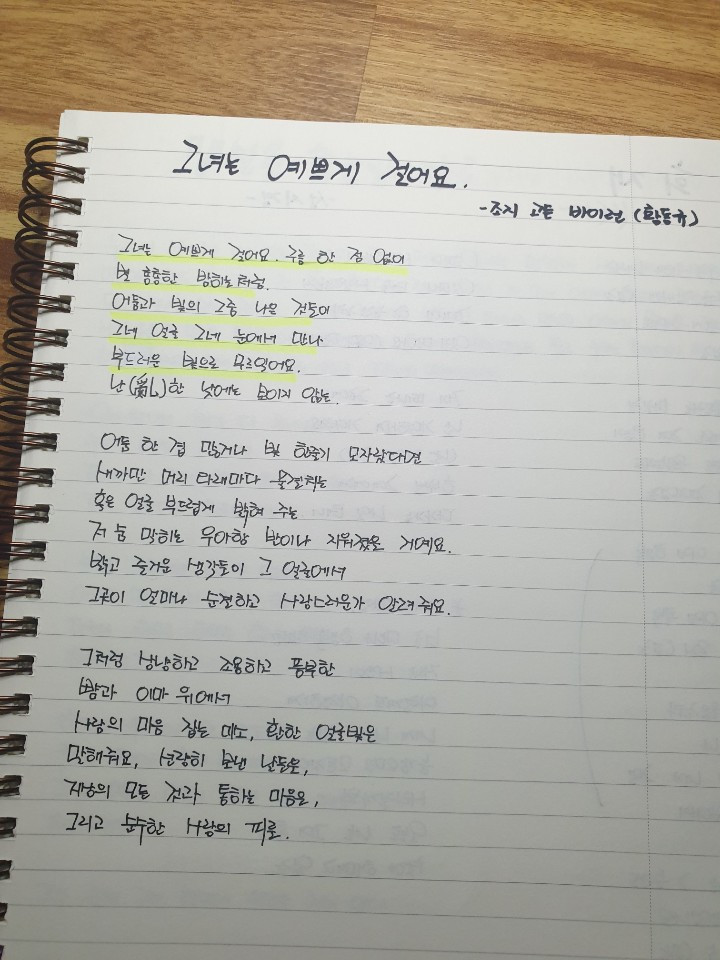 그녀는 예쁘게 걸어요.
- 조지 고든 바이런 (황동규)
그녀는 예쁘게 걸어요. 구름 한 점 없이
별 총총한 밤하늘처럼.
어둠과 빛의 그중 나은 것들이
그네 얼굴 그네 눈에서 만나
부드러운 빛으로 무르익어요.
난(亂)한 낮에는 보이지 않는.
어둠 한 겹 많거나 빛 한줄기 모자랐다면
새까만 머리 타래마다 물결치는
혹은 얼굴 부드럽게 밝혀 주는
저 숨 막히는 우아함 반이나 지워졌을 거예요.
밝고 즐거운 생각들이 그 얼굴에서
그곳이 얼마나 순결하고 사랑스러운가 알려 줘요.
그처럼 상냥하고 조용하고 풍부한
뺨과 이마 위에서
사랑의 마음 잡는 미소, 환한 얼굴빛은
말해줘요, 선량히 보낸 날들을,
지상의 모든 것과 통하는 마음을,
그리고 순수한 사랑의 피를.